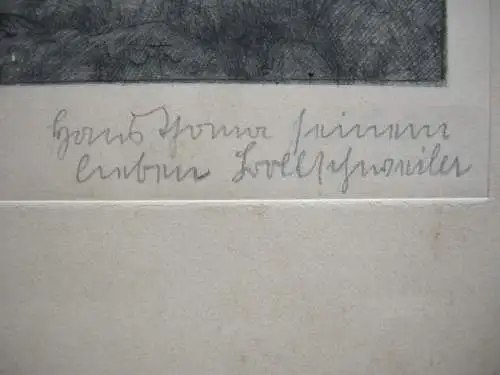 Hans Thoma seinem
lieben Bollschweiler